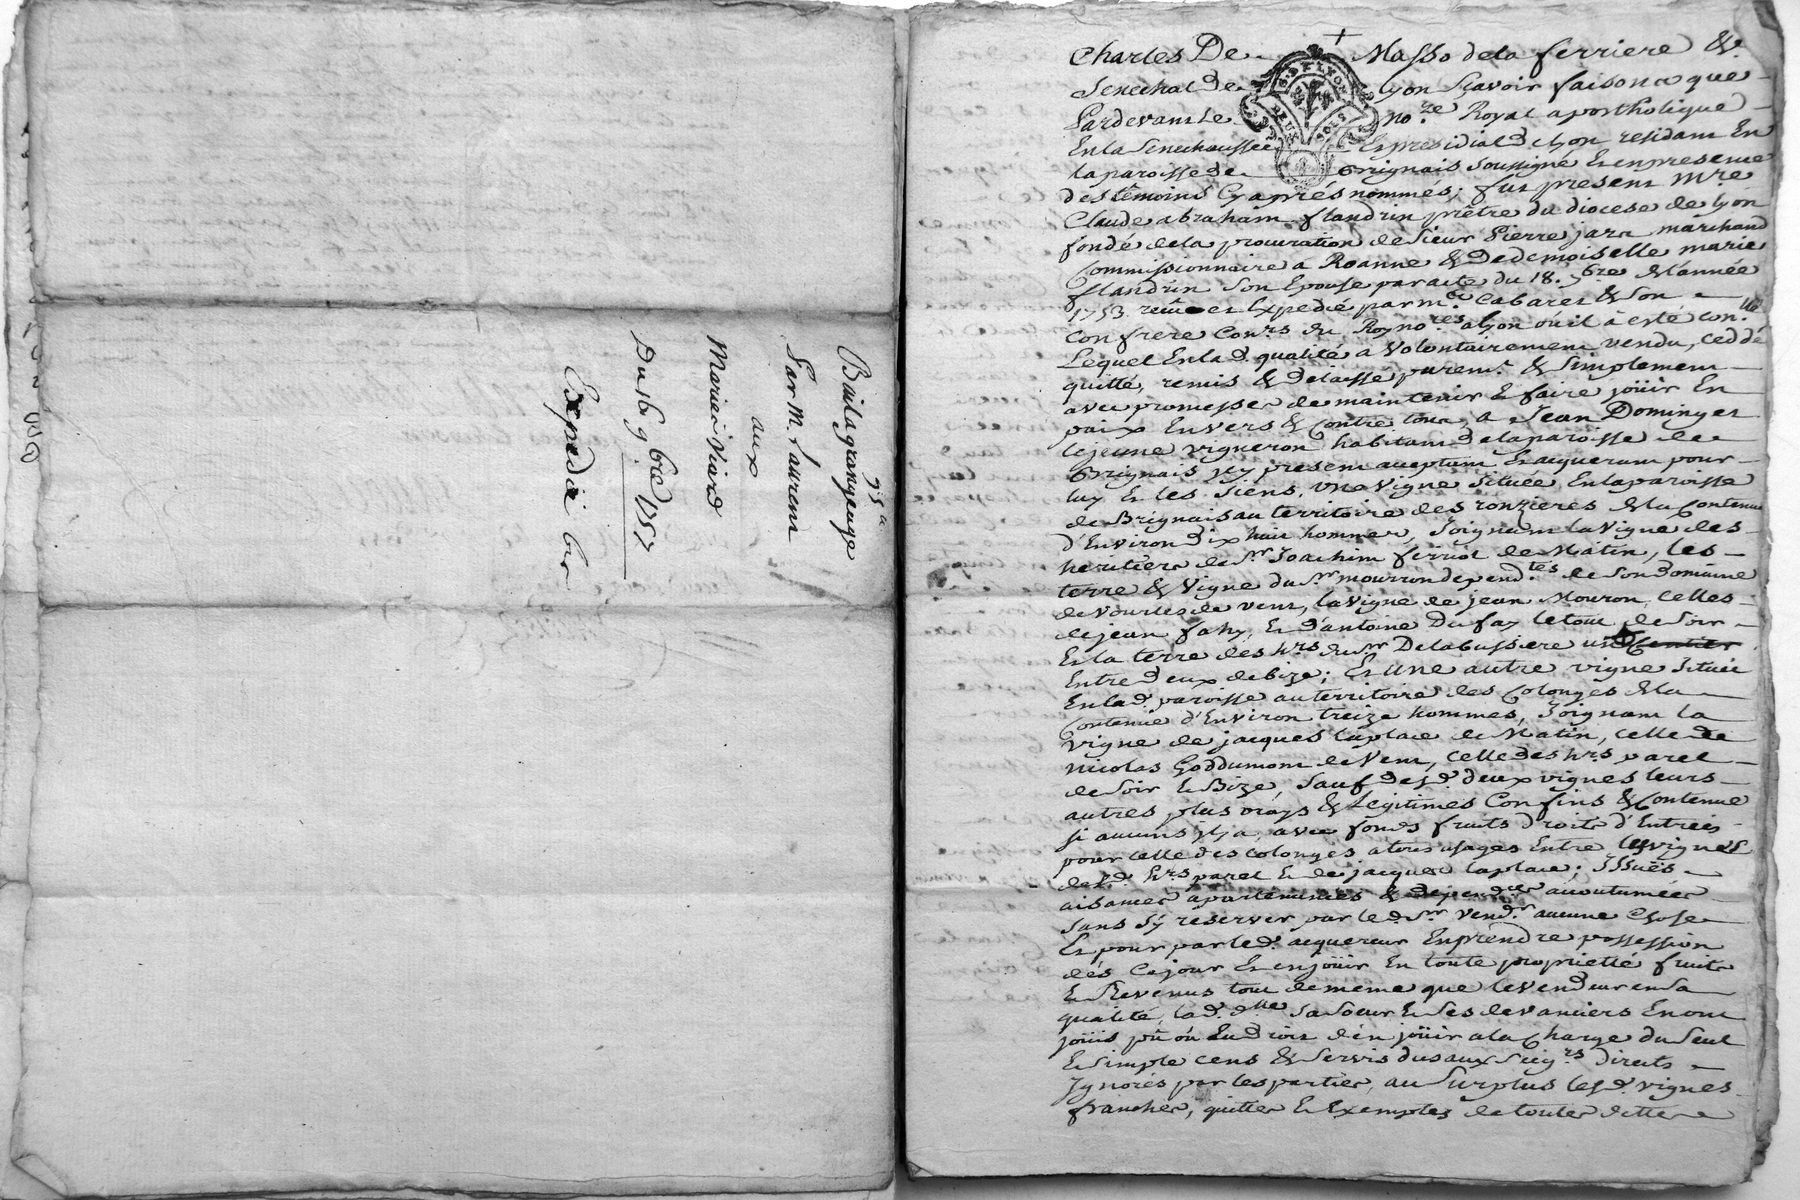 75a
Bail a grangeage
Par M. Laurent
aux
Mariés Viard
Du 16 9bre 1757
Expedié
Charles De Masso dela ferriere &c.
Senechal de Lyon Sçavoir faisons que
Pardevant Le nore Royal apostholique
En la Senechaussée Et presidial de Lyon residant En
la paroisse de Brignais soussigné Et en presence
des têmoins Cy après nommés; fut present Mre
Claude abraham flandrin prêtre du diocese de Lyon
fondé dela procuration de Sieur Pierre jars marchand
Commissionnaire a Roanne & Dedemoiselle marie
flandrin Son Epouse par acte du 18. 9bre de l'année
1753 recu et Expedié par me Cabaret & Son
Confrere Conrs du Roy nores a Lyon où il à esté con.lé
Lequel En lad. qualité a Volontairement vendu, ceddé
quitté, remis & delaissé purem.t & Simplement
avec promesses de maintenir & faire joüir En
paix Envers & Contre tous, a Jean Dominget
lejeune vigneron habitant de laparoisse de
Brignais jcy present acceptant Et acquerant pour
luy Et les Siens, une Vigne Située En laparoisse
de Brignais au territoire des ronzieres de la Contenue
d'Environ dix huit hommes, Joignant la Vigne des
heritiers de Sr Joachim ferriol de Matin, les
terre & Vigne du Sr mouron depend.tes de Son Domaine
de Vourles de vent, la Vigne de jean Mouron, Celles
de jean fahy, Et d'antoine Dufay le tout de Soir
Et la terre des hrs du Sr Delabussiere un Sentier
Entre deux de bize; Et Une autre vigne Située
En lad. paroisse au territoire des Colonges de la
Contenue d'Environ treize hommes, Joignant la
vigne de jacques laplace de Matin, celle de
nicolas Goddumont de Vent, celle des hrs parel
de Soir & Bize, Sauf desd. deux vignes leurs
autres plus vrays & Legitimes Confins & Contenue
si aucuns jl y a, avec fonds fruits droits d'Entrées
pour celle des colonges a tous usages Entre les vignes
desd. hrs parel & de jacques laplace; Jssuës
aisances apartenances & dependces accoutumées
sans s'y réserver par led. Sr vendr aucune Chose
Et pour par led. acquereur En prendre possession
dés Cejour Et en joüir En toute proprietté fruits
& Revenus tout de meme que le Vendeur en sa
qualité, lad. dlle Sa Soeur & Ses devanciers En ont
joüis pû où Eu droit d'en joüir a la Charge du Seul
& Simple cens & Servis dus aux Seigrs Directs
Jgnorés par les parties, au Surplus lesd. vignes
franches, quittes & Exemptes de toutes dettes